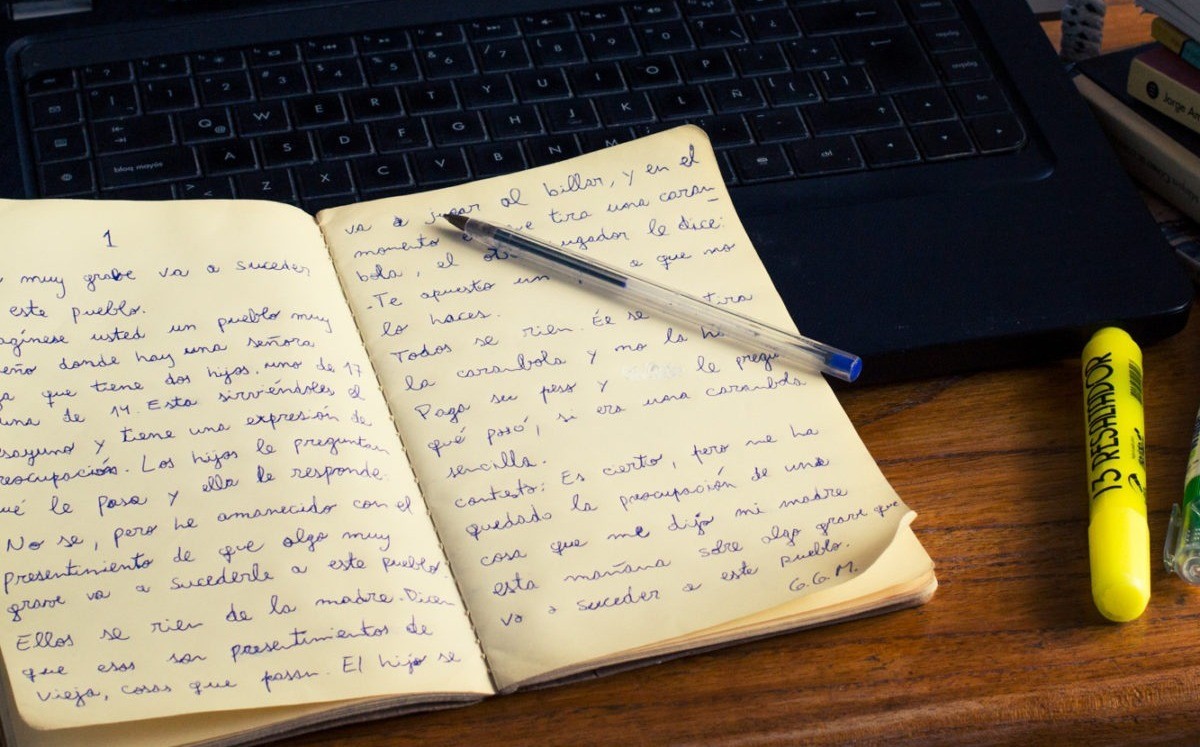 ? 
Q W E R T Y U I O P
bloq mayús A S D F G H J K L Ñ
> < Z X C V B N M
ctrl
repág
avpág
fin
Jorge
1
muy grave va a suceder
este pueblo.
agínese usted un pueblo muy
eño donde hay una señora
ja que tiene dos hijos, uno de 17
una de 14. Esta sirviéndoles el
sayuno y tiene una expresión de
reocupación. Los hijos le preguntan
ué le pasa y ella le responde:
No se, pero he amanecido con el
presentimiento de que algo muy
grave va a sucederle a este pueblo.
Ellos se rien de la madre. Dicen
que esos son presentimientos de
vieja, cosas que pasan. El hijo se
va a jugar al billar, y en el
momento tira una caram-
bola, el ugador le dice:
-Te apuesto un a que no
lo haces.
Todos se rien. Él se tira
la carambola y no la h
Paga su peso y le pregu
qué pasó, si era una carambola
sencilla.
contesta: Es cierto, pero me ha
quedado la preocupación de una
cosa que me dijo mi madre
esta mañana sobre algo grave que
va a suceder a este pueblo.
G.G.M.
13 RESALTADOR